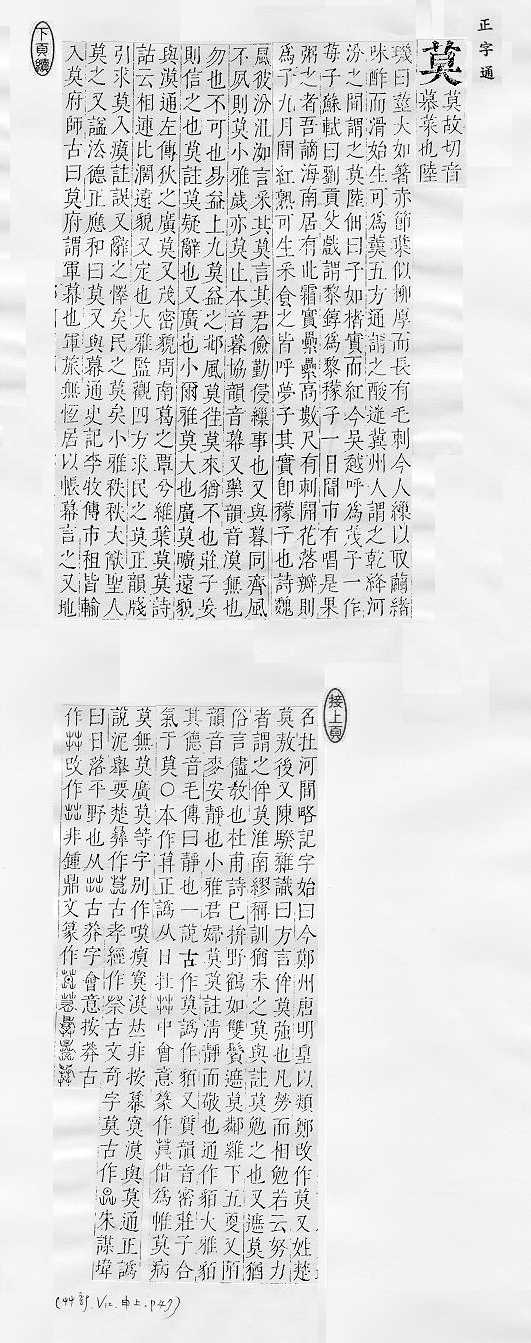 正字通
莫
莫故切音
慕菜也陸
璣曰莖大如箸赤節葉似柳厚而長有毛刺今人繅以取繭緒
味酢而滑始生可為羹五方通謂之酸迷冀州人謂之乾絳河
汾之間謂之莫陸佃曰子如楮實而紅今吳越呼為茂子一作
莓子蘇軾曰劉貢父戲謂黎錞為黎檬子一日聞市有唱是果
粥之者吾謫海南居有此霜實纍纍高數尺有刺開花落瓣則
為子九月間紅熟可生采食之皆呼夢子其實即檬子也詩魏
風彼汾沮洳言采其莫言其君儉勤侵繅事也又與暮同齊風
不夙則莫小雅歲亦莫止本音暮協韻音幕又藥韻音漠無也
勿也不可也易益上九莫益之邶風莫往莫來猶不也莊子妄
則信之也莫註莫疑辭也又廣也小爾雅莫大也廣莫曠遠貌
與漠通左傳狄之廣莫又茂密貌周南葛之覃兮維葉莫莫詩
詁云相連比濶遠貌又定也大雅監觀四方求民之莫正韻牋
引求莫入瘼註誤又辭之懌矣民之莫矣小雅秩秩大猷聖人
莫之又謚法德正應和曰莫又與幕通史記李牧傳市租皆輸
入莫府師古曰莫府謂軍幕也軍旅無恆居以帳幕言之又地
下頁續
接上頁
名在河間略記字始曰今鄭州唐明皇以類鄭改作莫又姓楚
莫敖後又陳騤雜識曰方言侔莫強也凡勞而相勉若云努力
者謂之侔莫淮南繆稱訓猶未之莫與註莫勉之也又遮莫猶
俗言儘教也杜甫詩已拚野鶴如雙鬢遮莫鄰雞下五更又陌
韻音麥安靜也小雅君婦莫莫註清靜而敬也通作貊大雅貊
其德音毛傳曰靜也一說古作莫譌作貊又質韻音密莊子合
氣于莫○本作茻正譌从日在茻中會意篆作莫借為帷莫病
莫無莫廣莫等字別作嘆瘼寞漠𠀤非按幕寞漠與莫通正譌
說泥舉要楚彝作古孝經作古文奇字莫古作朱謀㙔
曰日落平野也从茻古莽字會意按莽古
作茻改作非鍾鼎文篆作
(44部.V12.申上.P47)